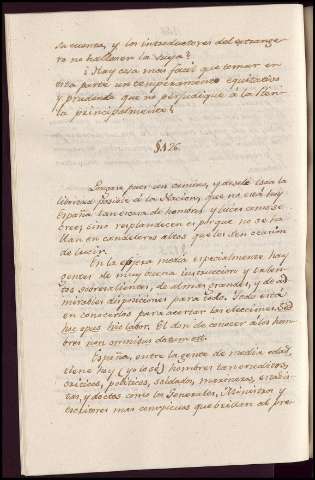 su cuenta, y los introductores del extrange-
ro no hallasen la suya?
¿Hay cosa mas facil que tomar en
esta parte un temperamento equitativo
y prudente que no perjudique á la
la principalmente?
§.126.
pues un camino, y desele toda la
libertad posible á la Nacion, que no está hoy
España tan escasa de hombres y luces como se
cree; sino resplandecen es porque no se ha-
llan en candeleros altos que les den ocasion
de lucir.
En la esfera media especialmente hay
gentes de muy buena instruccion y talen-
tos sobresalientes, de almas grandes, y de ad-
mirables disposiciones para todo. Todo está
en conocerlas para acertar las elecciones. Sed
hoc opus hic labor. El don de conocer á los hom-
bres non omnibus datum est.
España, entre la gente de media edad,
tiene hoy (yo lo sé) hombres tan eruditos,
criticos, politicos, soldados, marineros, estadis-
tas, y doctos como los Generales, Ministros y
escritores mas conspicuos que brillan al pre-